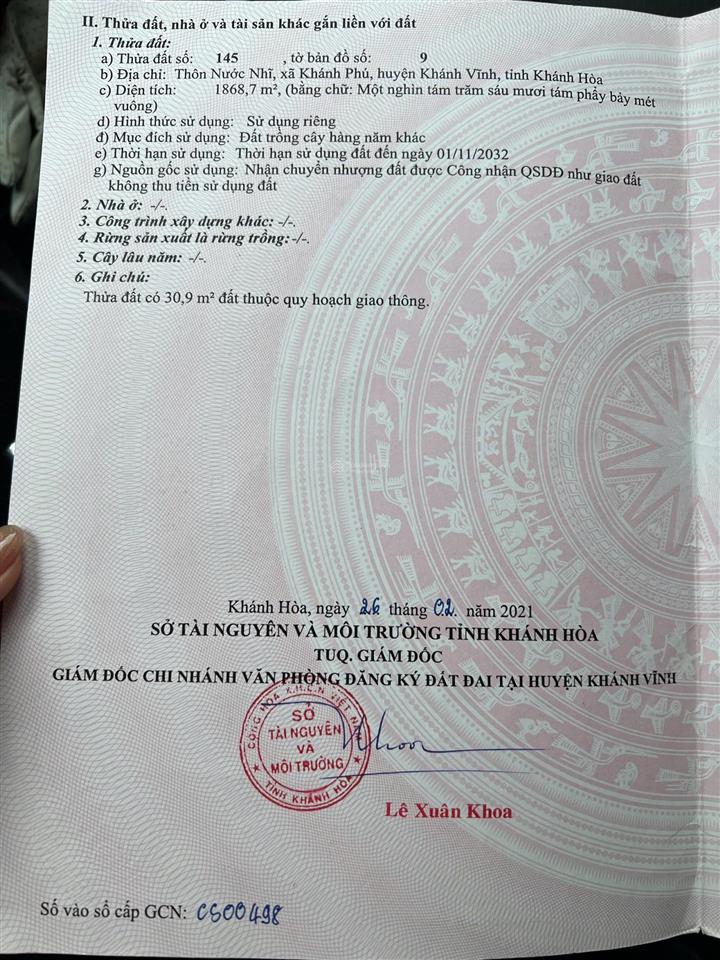 II. Thửa đất, nhà ở và tài sản khác gắn liền với đất
1. Thửa đất:
a) Thửa đất số: 145 , tờ bản đồ số: 9
b) Địa chỉ: Thôn Nước Nhĩ, xã Khánh Phú, huyện Khánh Vĩnh, tỉnh Khánh Hòa
c) Diện tích: 1868,7 m², (bằng chữ: Một nghìn tám trăm sáu mươi tám phẩy bảy mét
vuông)
d) Hình thức sử dụng: Sử dụng riêng
đ) Mục đích sử dụng: Đất trồng cây hàng năm khác
e) Thời hạn sử dụng: Thời hạn sử dụng đất đến ngày 01/11/2032
g) Nguồn gốc sử dụng: Nhận chuyển nhượng đất được Công nhận QSDĐ như giao đất
không thu tiền sử dụng đất
2. Nhà ở: -/-.
3. Công trình xây dựng khác: -/-.
4. Rừng sản xuất là rừng trồng: -/-.
5. Cây lâu năm: -/-.
6. Ghi chú:
Thửa đất có 30,9 m² đất thuộc quy hoạch giao thông.
Khánh Hòa, ngày 26 tháng 02. năm 2021
SỞ TÀI NGUYÊN VÀ MÔI TRƯỜNG TỈNH KHÁNH HÒA
TUQ. GIÁM ĐỐC
GIÁM ĐỐC CHI NHÁNH VĂN PHÒNG ĐĂNG KÝ ĐẤT ĐAI TẠI HUYỆN KHÁNH VĨNH
CỘNG HÒA X.H.C.N VIỆT NAM
SỞ
TÀI NGUYÊN
VÀ
MÔI TRƯỜNG
TỈNH KHÁNH HÒA
Khoa
Lê Xuân Khoa
Số vào sổ cấp GCN: CS00498